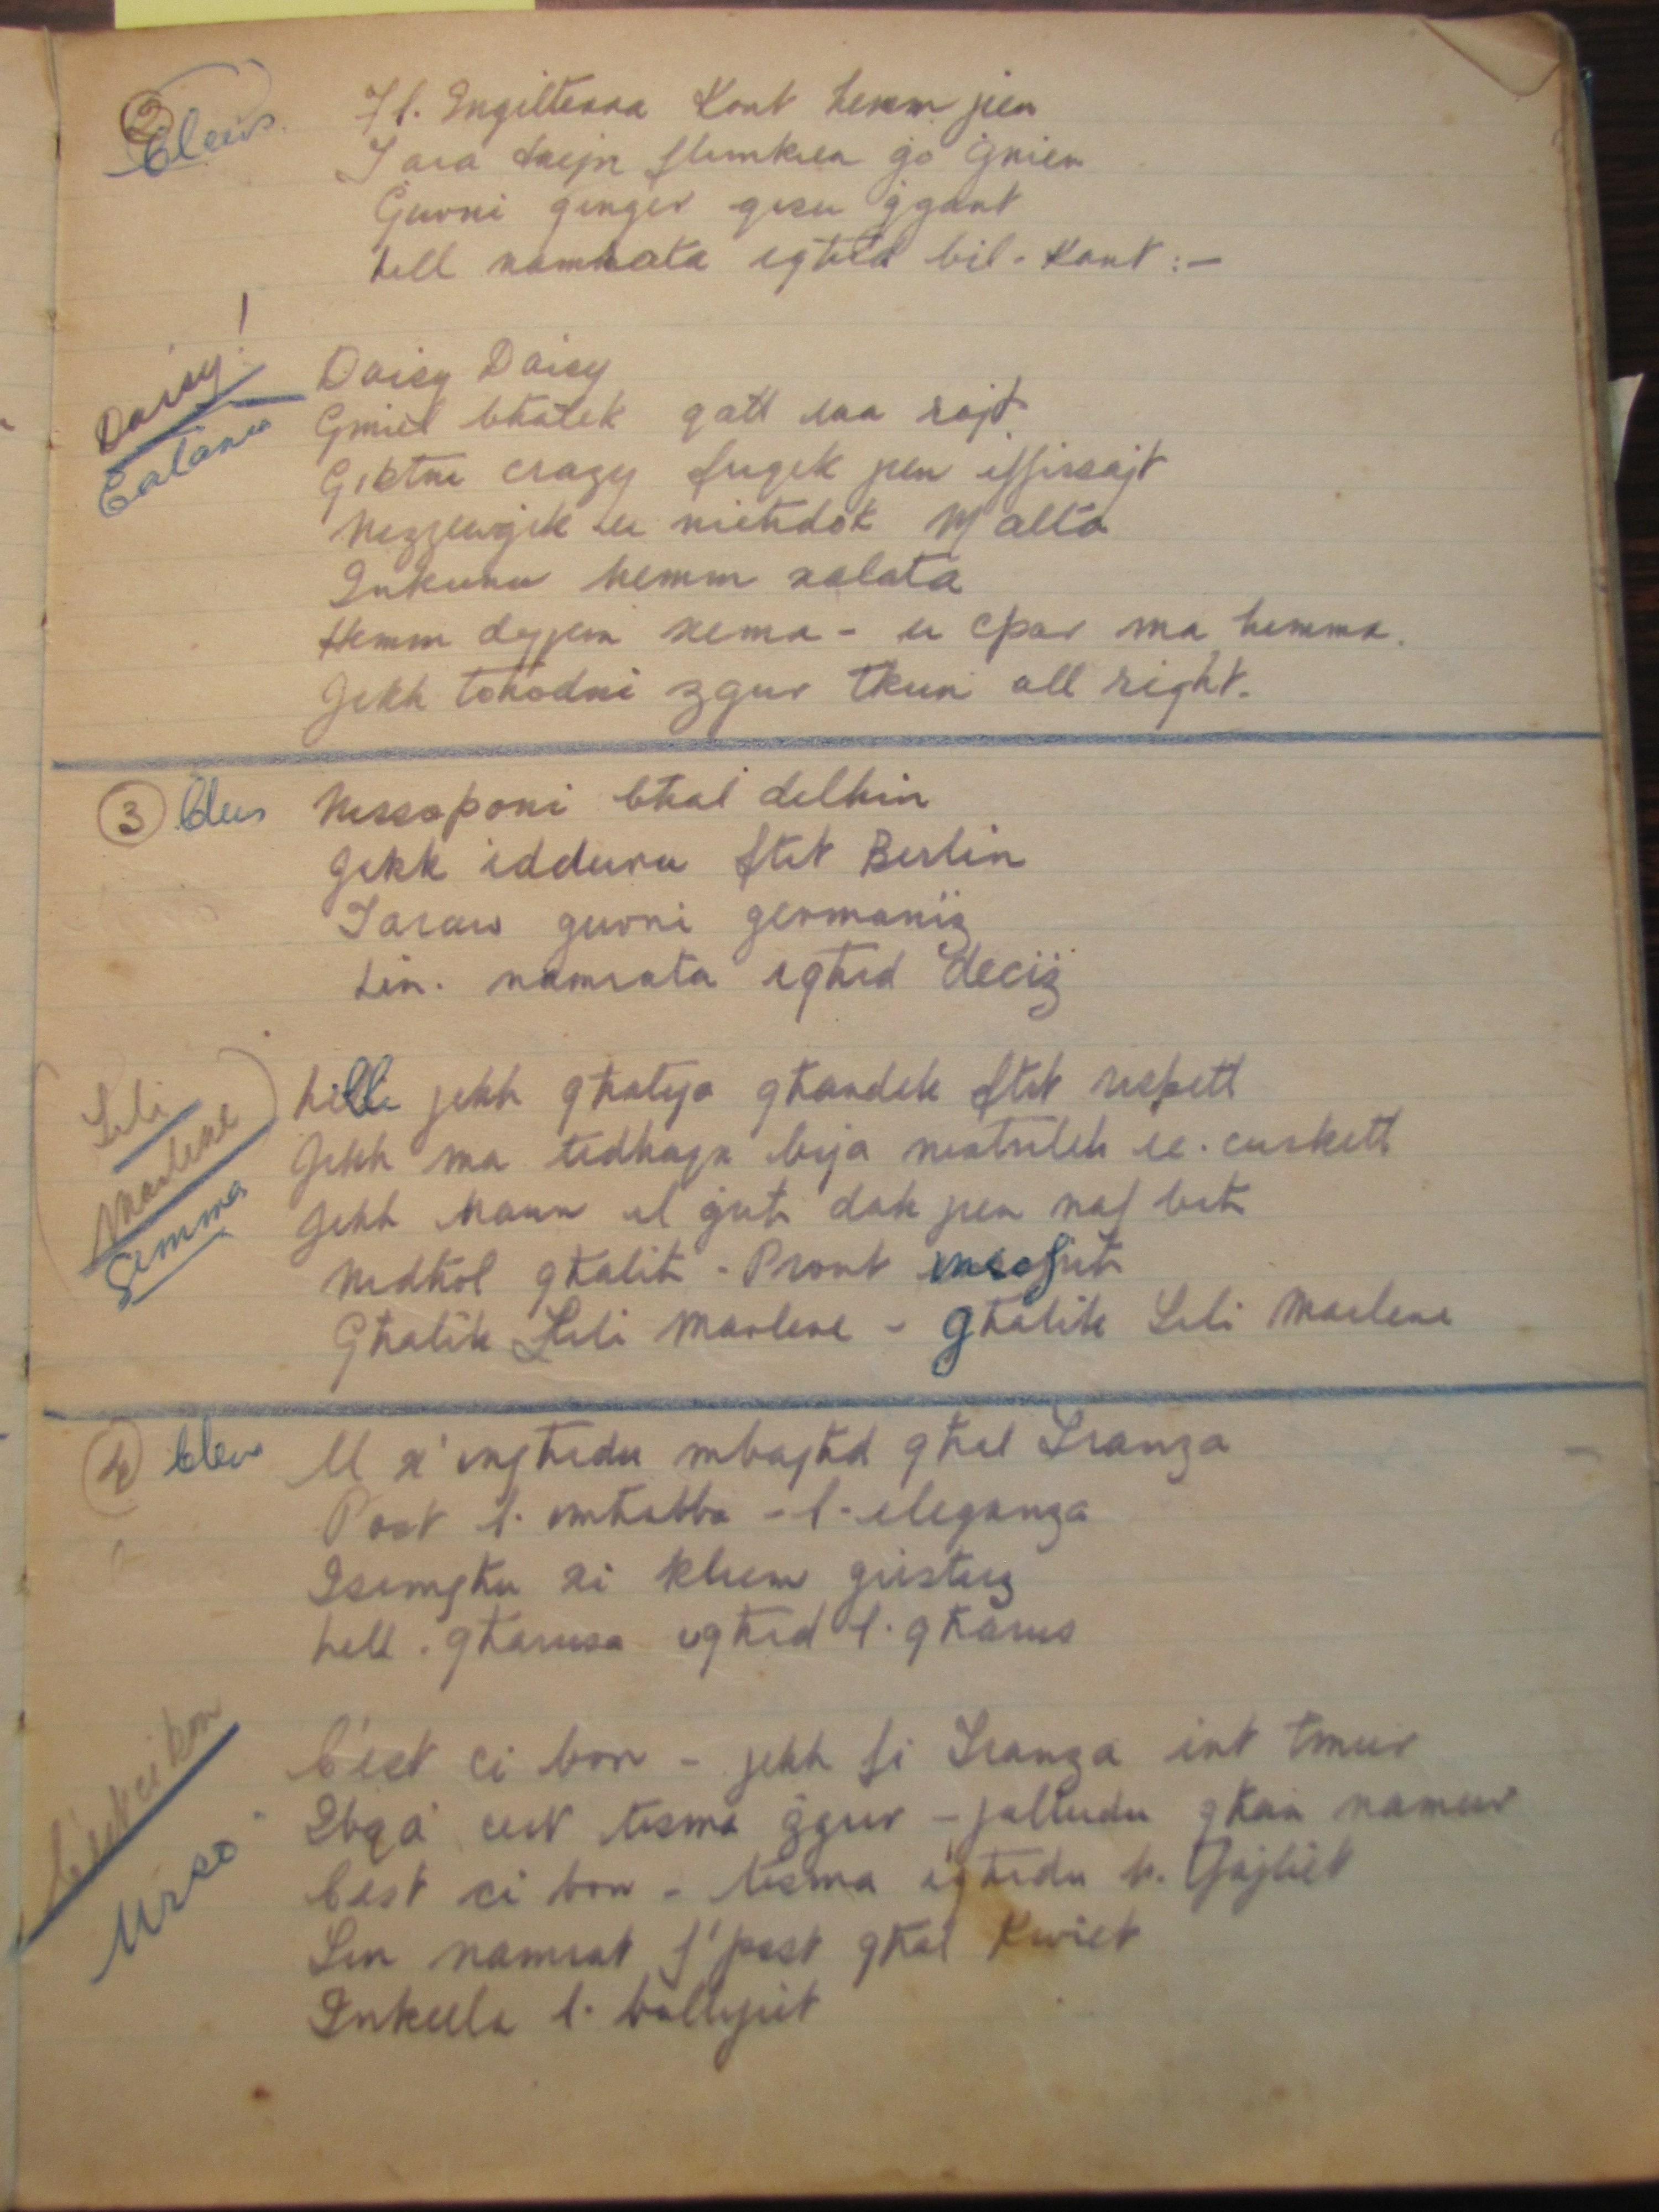 ② Cleus
F'l-Ingilterra Kont hemm jien
Tara tnejn flimkien ġo ġnien
Ġuvni ginger qisu ġgant
lill namrata igħid bil-Kant :-
Daisy!
Catania
Daisy Daisy
Gmiel bħalek qatt ma rajt
Ġibtni crazy fuqek jien iffissajt
Nizzewġek u nieħdok Malta
Inkunu hemm salata
Hemm dejjem xemx - u cpar ma hemmx.
Jekk toħodni zgur tkun all right.
③ Cleus
Nissoponi bħal delkin
Jekk idduru ftit Berlin
Taraw guvni germaniz
Lin-namrata igħid deciz
(Lili Marlene)
Gemma
Lilli jekk għalija għandek ftit rispett
Jekk ma tidħaqx bija nixtrilek ic-curkett
Jekk Maun il ġuħ dak jien naf bih
Nidħol għalih - Pront insofrih
Għalik Lili Marlene - għalik Lili Marlene
④ Cleus
U x'ingħidu mbagħd għal Franza
Post l-imħabba - l-eleganza
Isimgħu xi kliem giistuz
lill-għarusa igħid l-għarus
C'est ci bon
Urso
C'est ci bon - jekk fi Franza int tmur
Ibqa' cert tisma żgur - jaltudu għan namur
C'est ci bon - tisma igħidu h. Tfajliet
Lin namrat f'post għal Kwiet
Inkella l-ballijiet